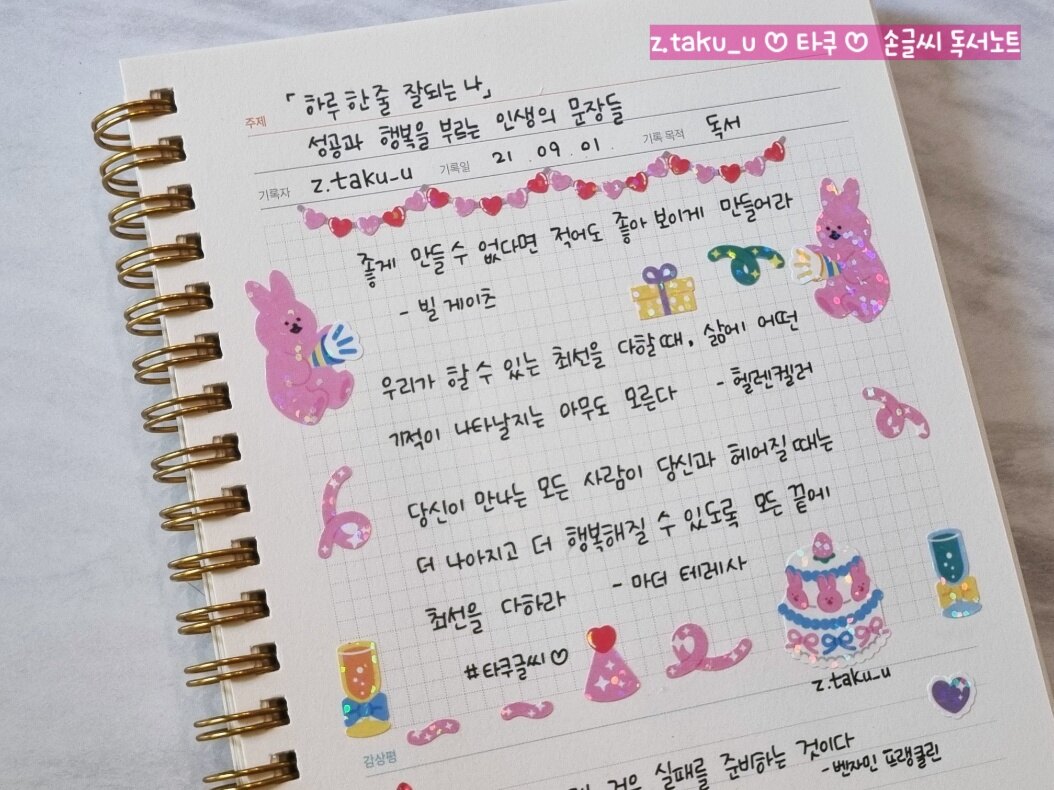 z.taku_u ♡ 타쿠 ♡ 손글씨 독서노트
주제 「하루 한 줄 잘되는 나」
성공과 행복을 부르는 인생의 문장들
기록자 z.taku_u 기록일 21 . 09 . 01 . 기록 목적 독서
좋게 만들 수 없다면 적어도 좋아 보이게 만들어라
- 빌 게이츠
우리가 할 수 있는 최선을 다할 때, 삶에 어떤
기적이 나타날지는 아무도 모른다 - 헬렌켈러
당신이 만나는 모든 사람이 당신과 헤어질 때는
더 나아지고 더 행복해질 수 있도록 모든 끝에
최선을 다하라 - 마더 테레사
#타쿠글씨♡
z.taku_u
감상평
것은 실패를 준비하는 것이다
- 벤자민 프랭클린